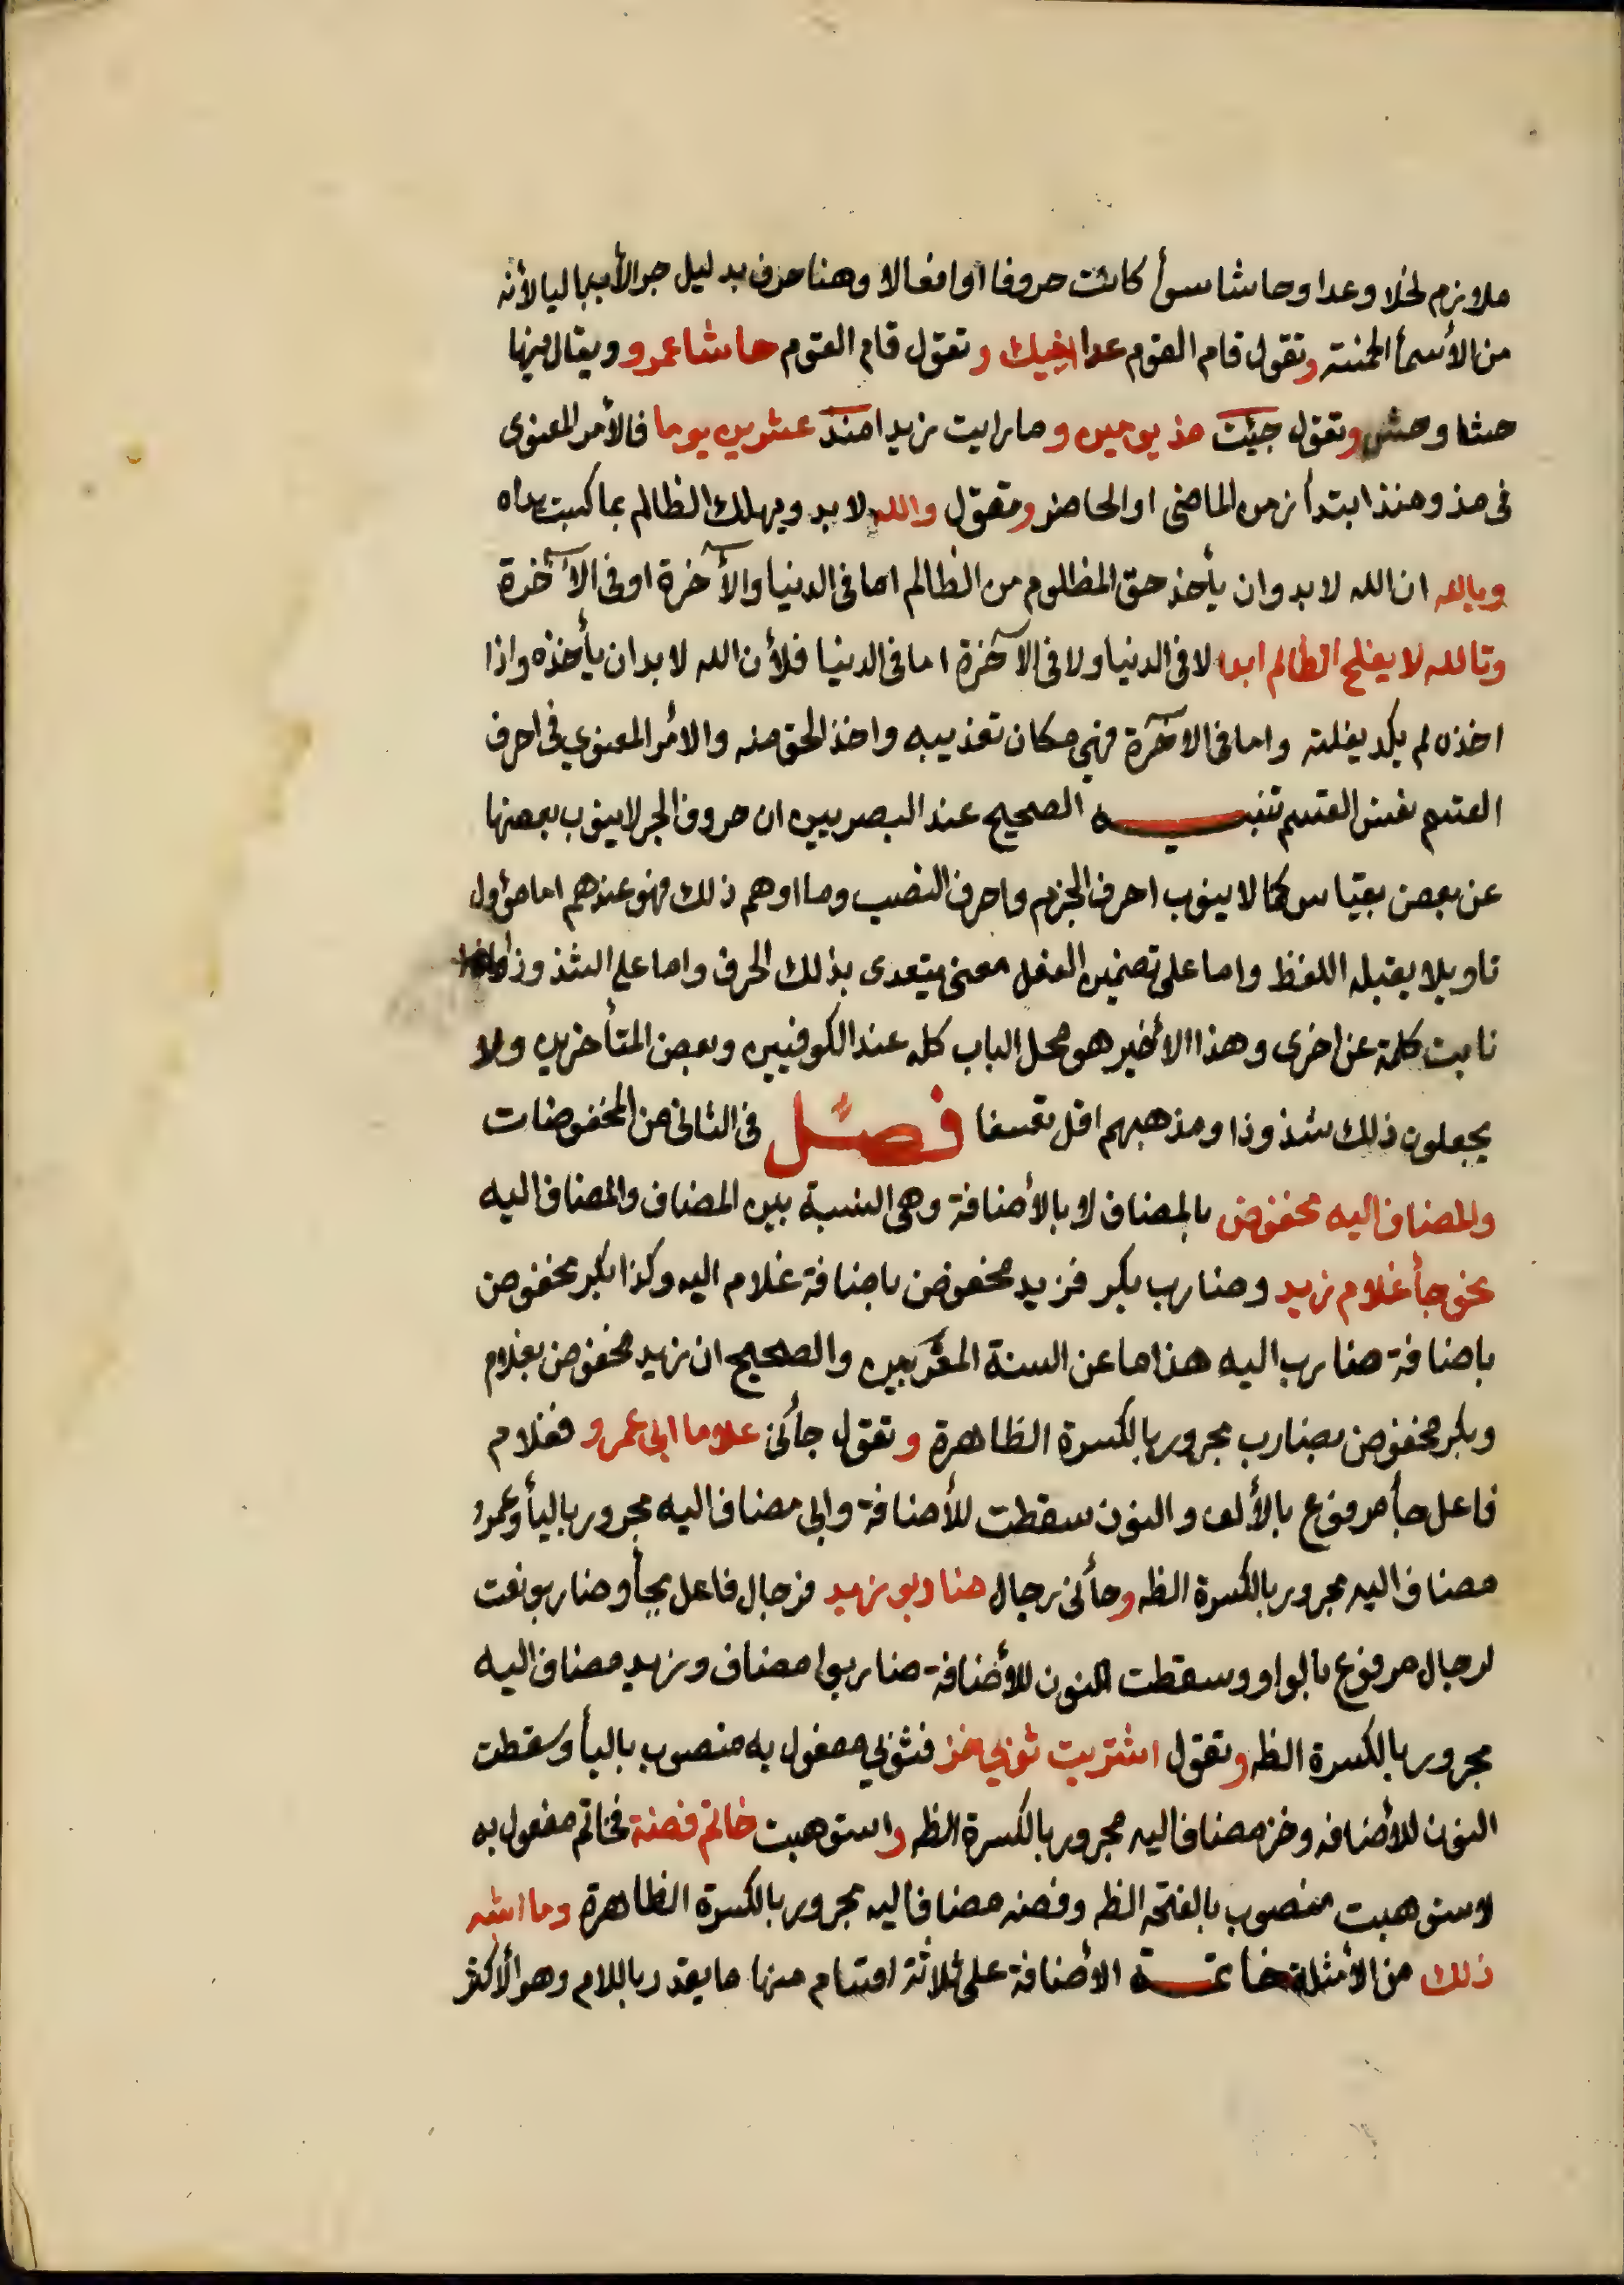 ملازم لخلا وعدا وحاشا سوأ كانت حروفا او افعالا وهنا حرف بدليل جر الأب باليا لأنه
من الأسمأ الخمسة وتقول قام القوم عدا اخيك وتقول قام القوم حاشا عمرو ويقال فيها
حشا وحش وتقول جيت مذ يومين وما رايت زيدا منذ عشرين يوما فالأمر المعنوى
فى مذ ومنذ ابتدأ زمن الماضى او الحاضر وتقول والله لا بد ويهلك الظالم بما كسبت يداه
وبالله ان الله لا بد وان يأخذ حق المظلوم من الظالم اما فى الدنيا والأخرة او فى الأخرة
وتالله لا يفلح الظالم ابدا لا فى الدنيا ولا فى الآخرة اما فى الدنيا فلأن الله لا بد ان يأخذه واذا
اخذه لم يكد يفلته واما فى الآخرة فهي مكان تعذيبه واخذ الحق منه والامر المعنوي فى احرف
القسم نفس القسم تنبيه الصحيح عند البصريين ان حروف الجر لا ينوب بعضها
عن بعض بقياس كما لا ينوب احرف الجزم واحرف النصب وما اوهم ذلك فهو عندهم اما مؤول
تاويلا يقبله اللفظ واما على تضمين الفعل معنى يتعدى بذلك الحرف واما على الشذوذ
نابت كلمة عن اخرى وهذا الاخير هو محل الباب كله عند الكوفيين وبعض المتأخرين ولا
يجعلون ذلك شذوذا ومذهبهم اقل تعسفا فصل فى الثانى من المخفوضات
والمضاف اليه مخفوض بالمضاف لا بالأضافة وهى النسبة بين المضاف والمضاف اليه
نحو جأ غلام زيد وضارب بكر فزيد مخفوض باضافة غلام اليه وكذا بكر مخفوض
باضافة ضارب اليه هذا ما عن السنة المعربين والصحيح ان زيد مخفوض بغلام
وبكر مخفوض بضارب مجرور بالكسرة الظاهرة وتقول جأنى غلاما ابى عمرو فغلام
فاعل جأ مرفوع بالألف والنون سقطت للأضافة وابى مضاف اليه مجرور باليأ وعمرو
مضاف اليه مجرور بالكسرة الظه وجأنى رجال ضاربو زيد فرجال فاعل بجأ وضاربو نعت
لرجال مرفوع بالواو وسقطت النون للأضافة ضاربوا مضاف وزيد مضاف اليه
مجرور بالكسرة الظه وتقول اشتريت ثوبي خز فثوبي مفعول به منصوب باليأ وسقطت
النون للأضافه وخز مضاف اليه مجرور بالكسرة الظه واستوهبت خاتم فضة فخاتم مفعول به
لاستوهبت منصوب بالفتحه الظه وفضه مضاف اليه مجرور بالكسرة الظاهرة وما اشبه
ذلك من الأمثلة خاتمة الأضافة على ثلاثة اقسام منها ما يقدر باللام وهو الأكثر